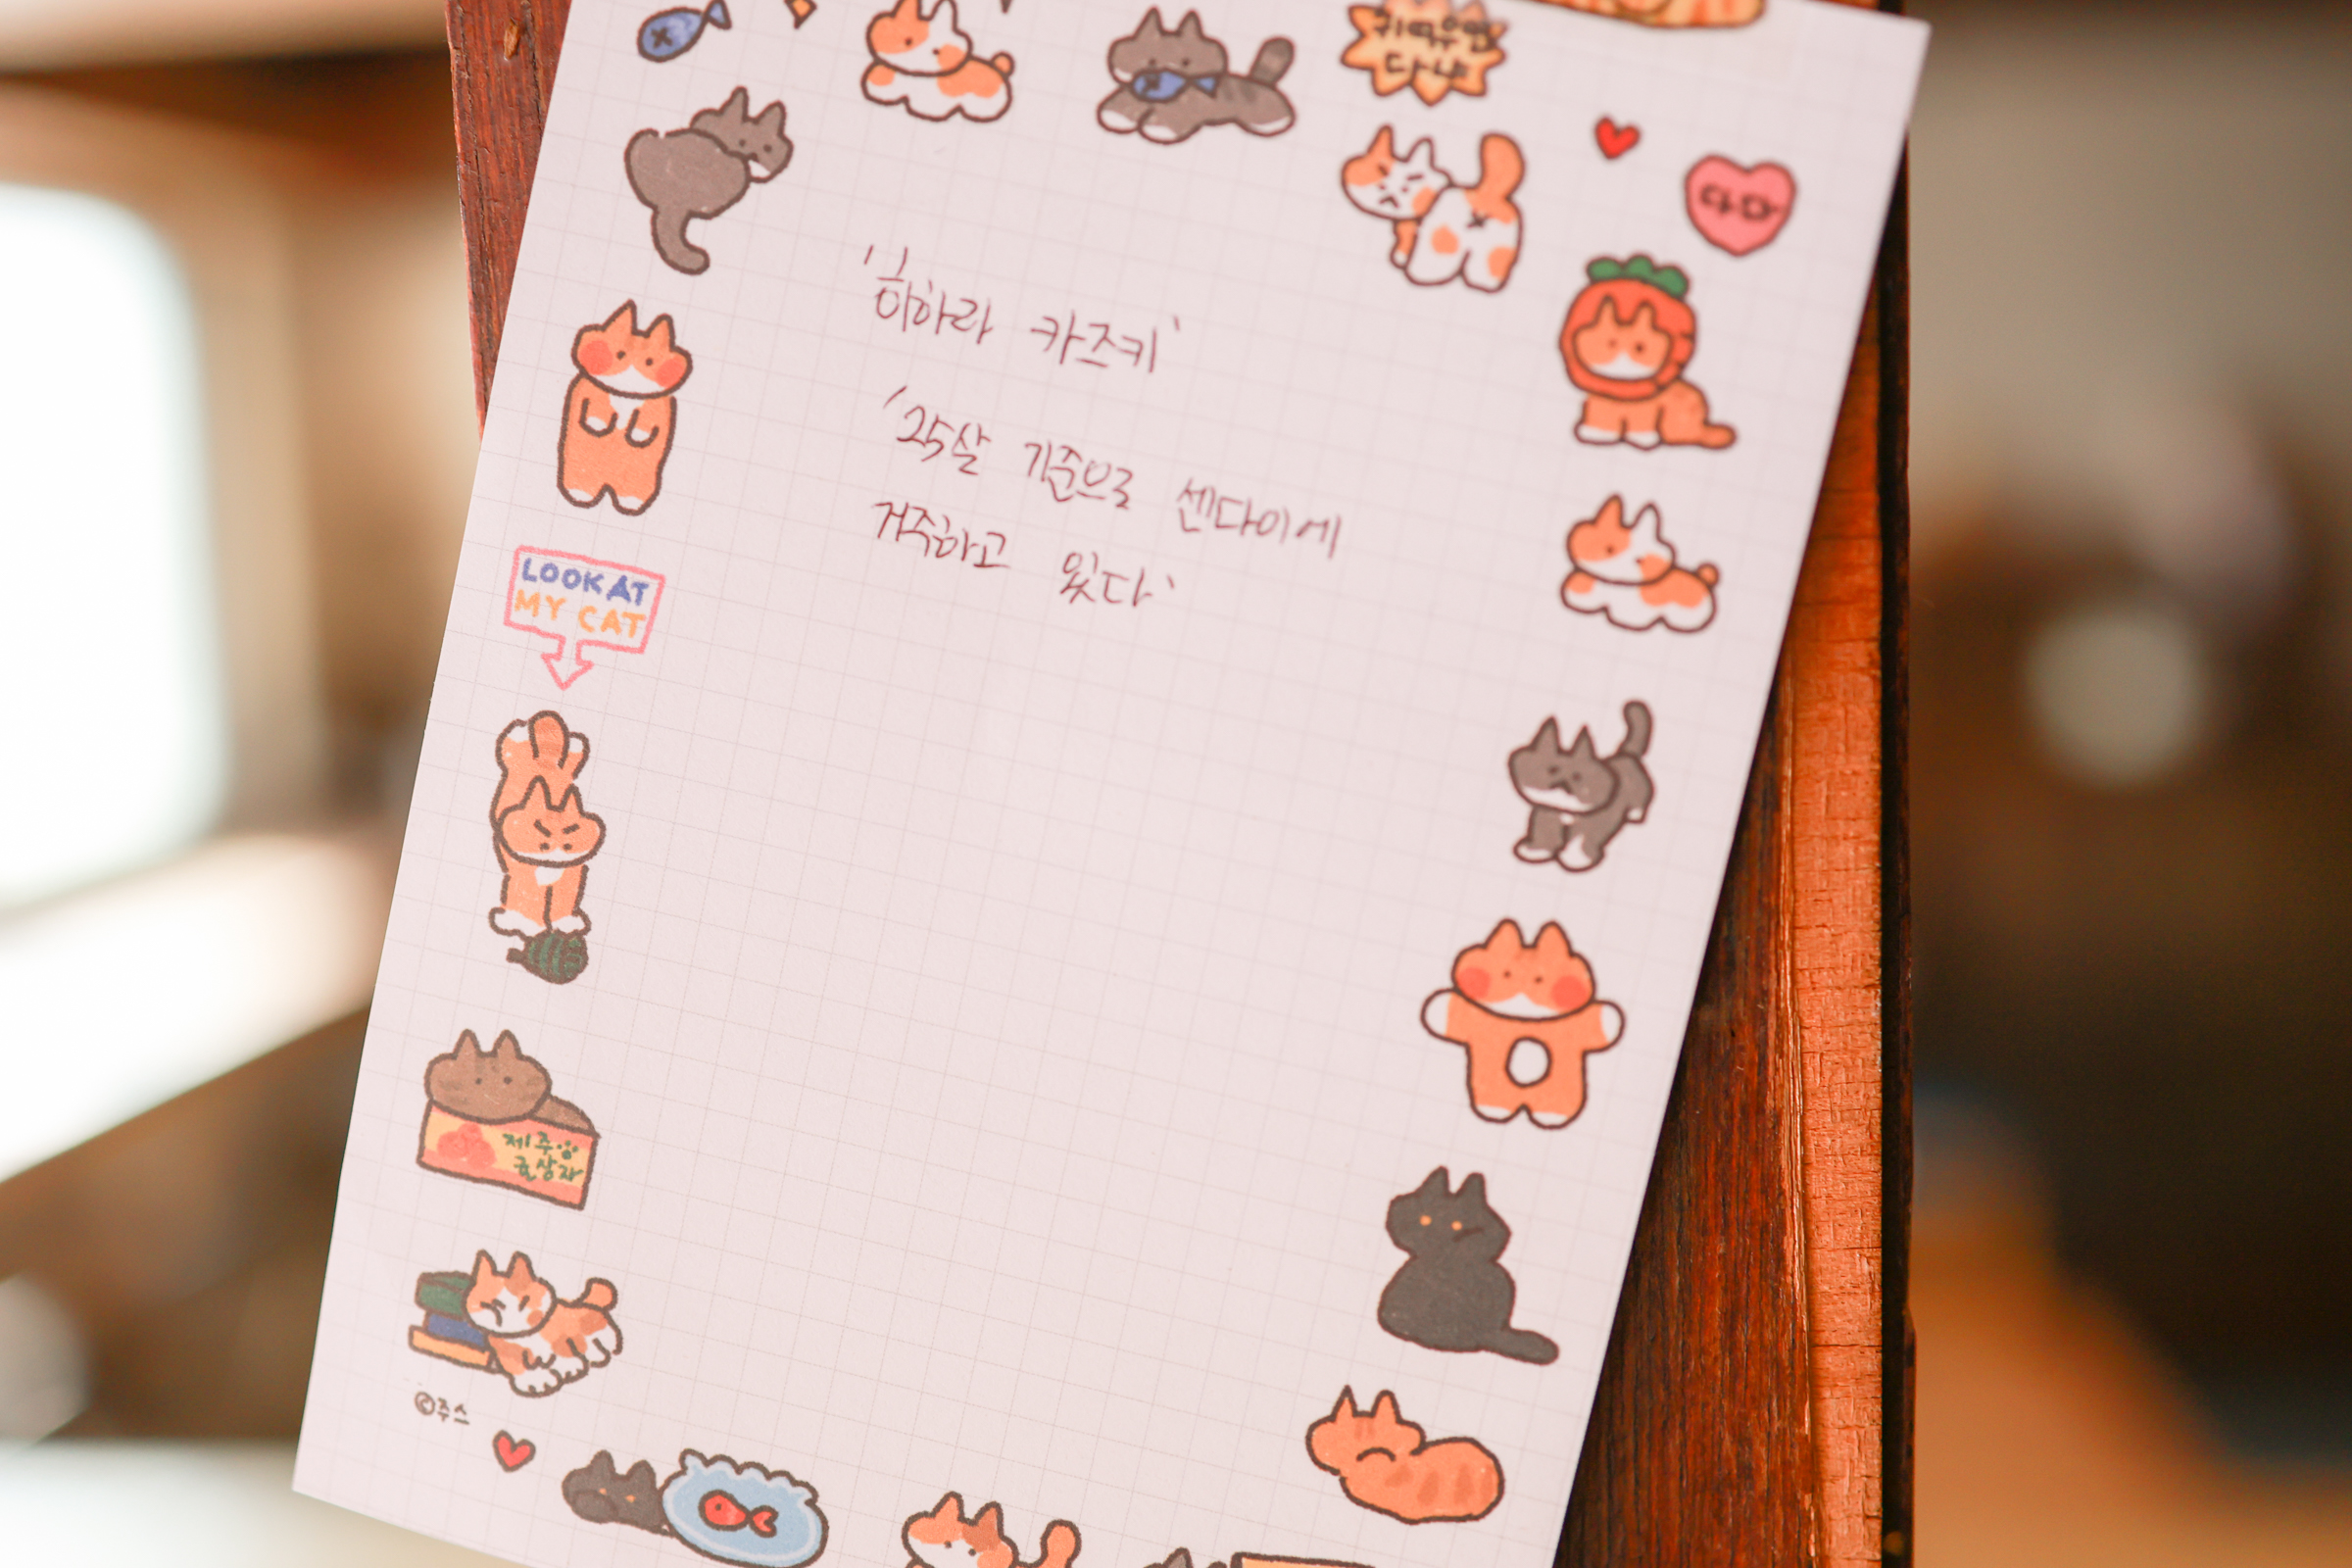 귀여우면
다냐
다다
'히하라 카즈키'
'25살 기준으로 센다이에
거주하고 있다'
LOOK AT
MY CAT
제주양
귤상자
©주스